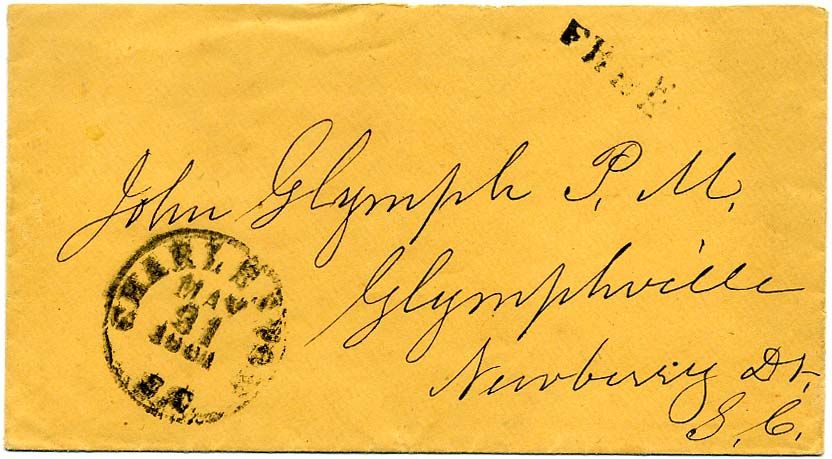 FREE
John Glymph P. M.
Glymphville
Newberry Dt,
S. C.
CHARLESTON
MAY
31
1861
S.C.